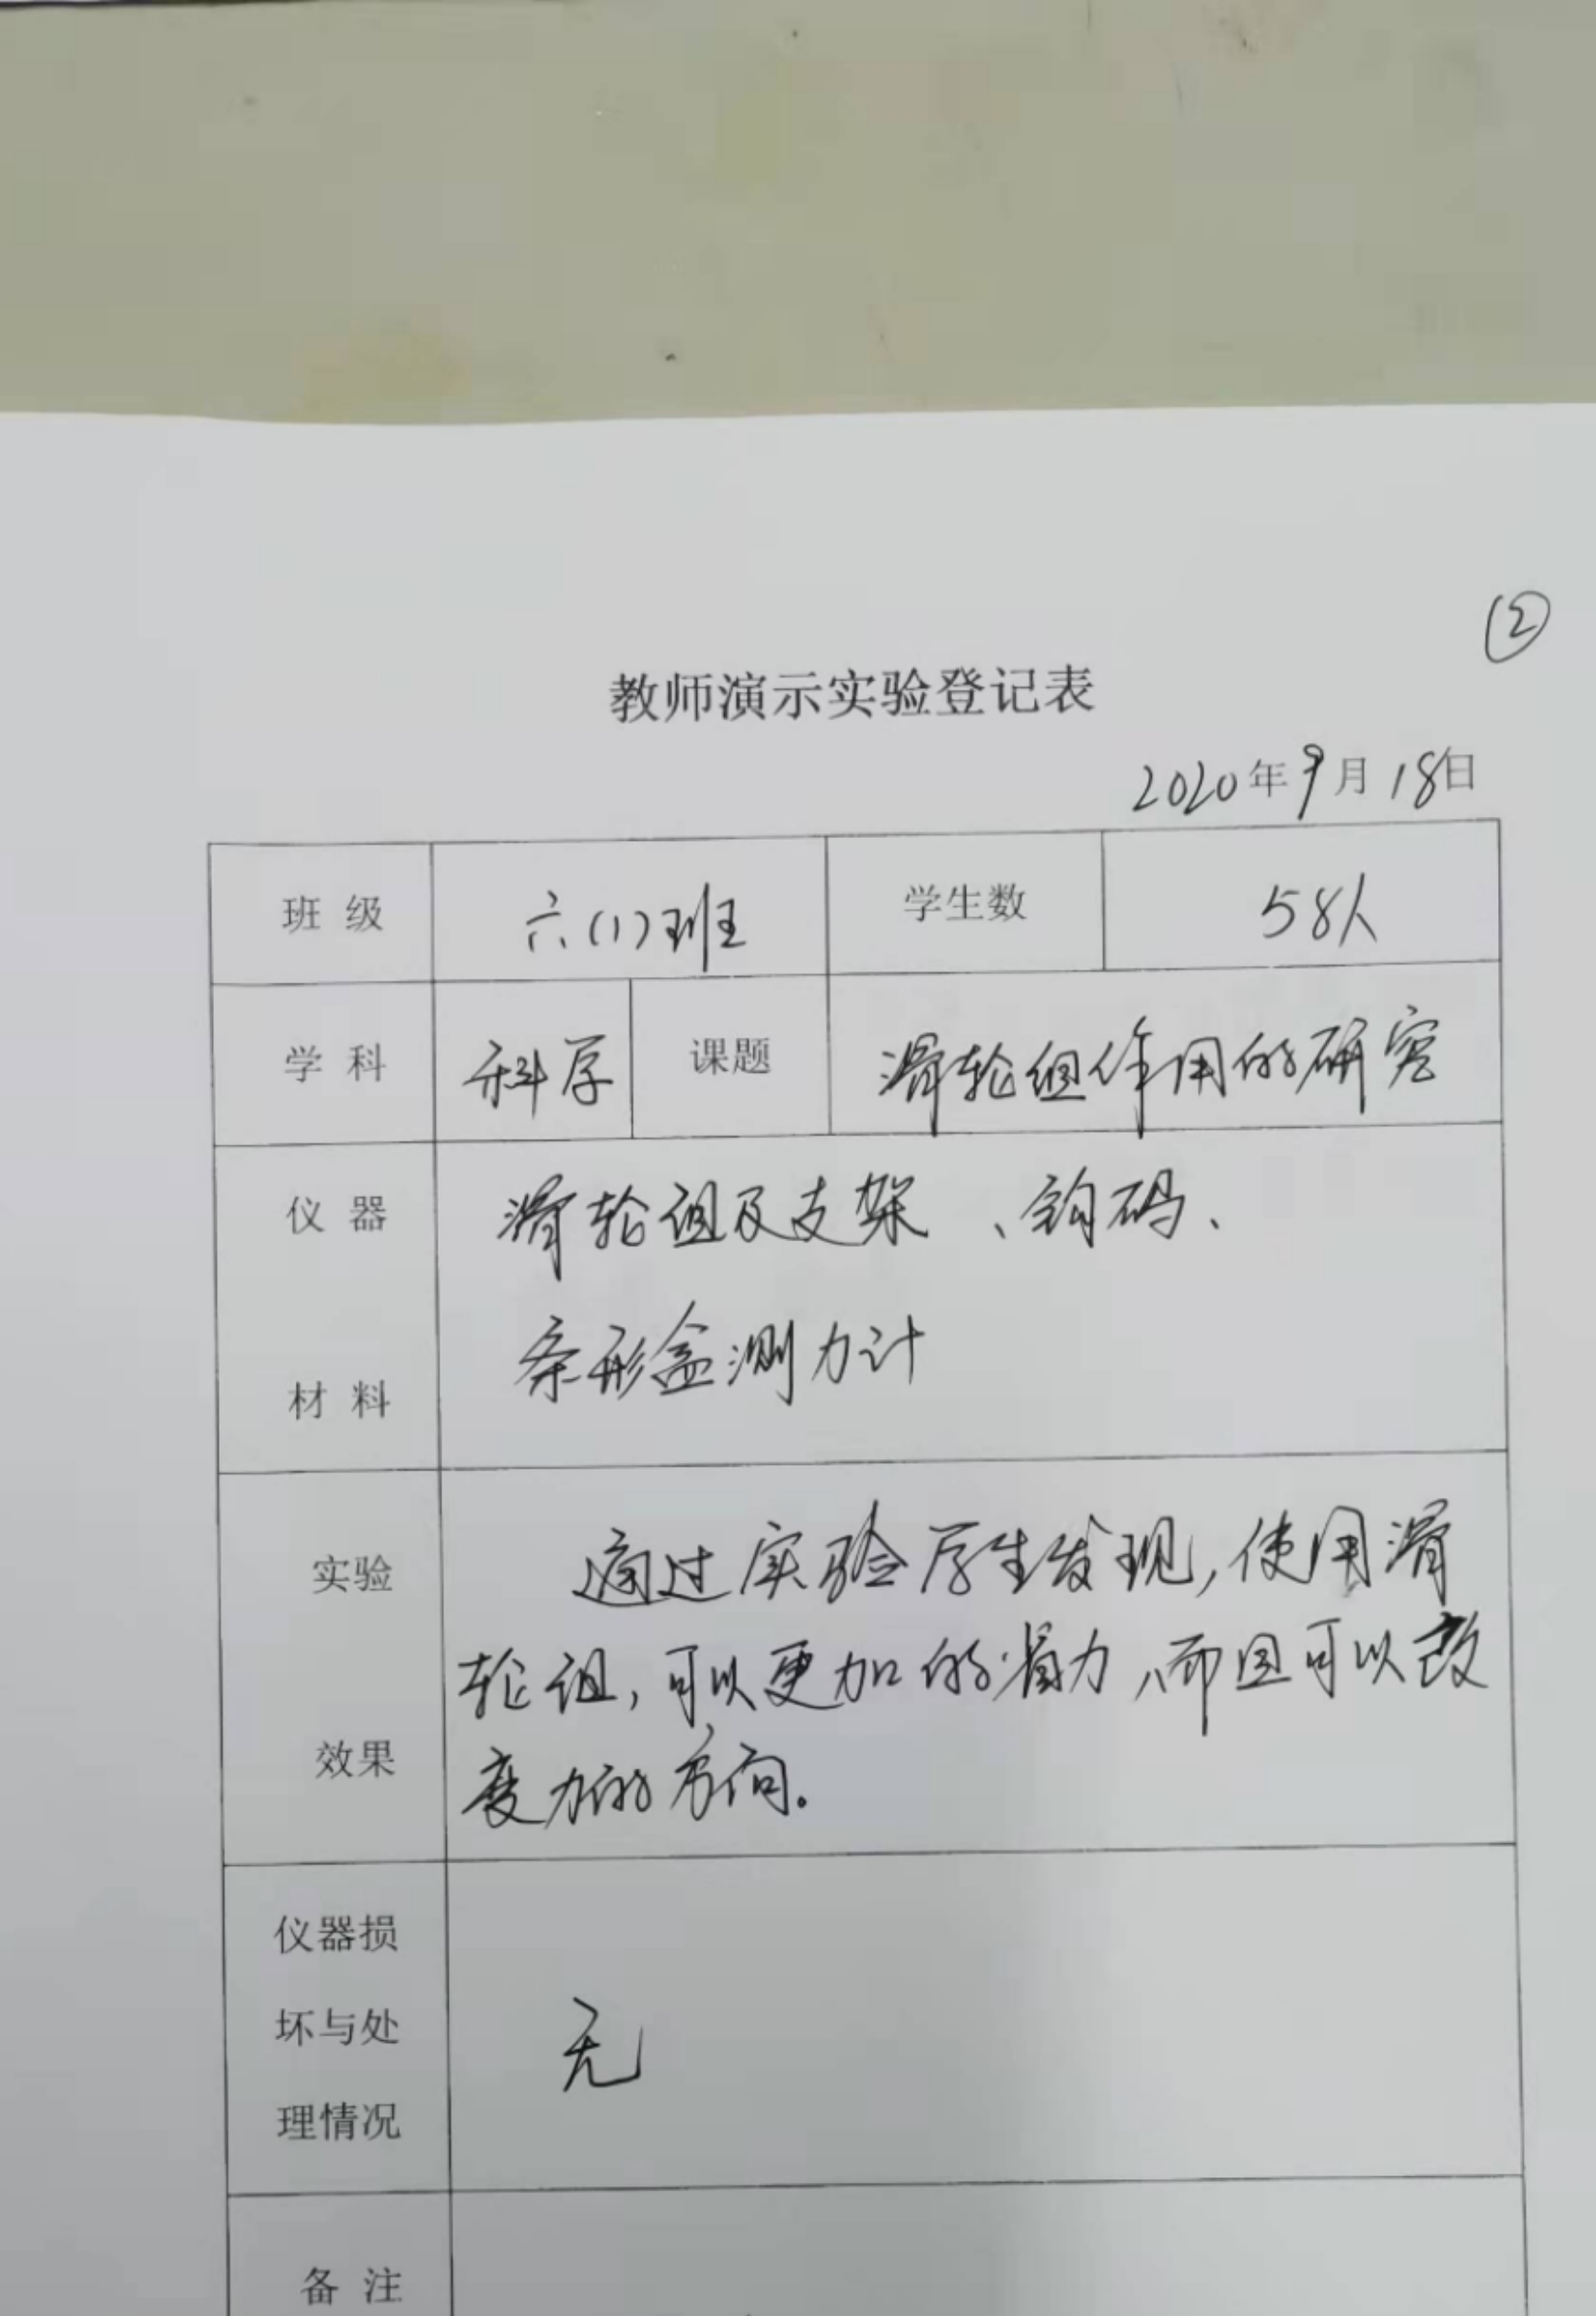 ②
教师演示实验登记表
2020年9月18日
班 级 六(1)班 学生数 58人
学 科 科学 课题 滑轮组作用的研究
仪 器 滑轮组及支架、钩码、
条形盒测力计
材 料
实验 通过实验学生发现,使用滑
轮组,可以更加的省力,而且可以改
效果 变力的方向。
仪器损
坏与处 无
理情况
备 注